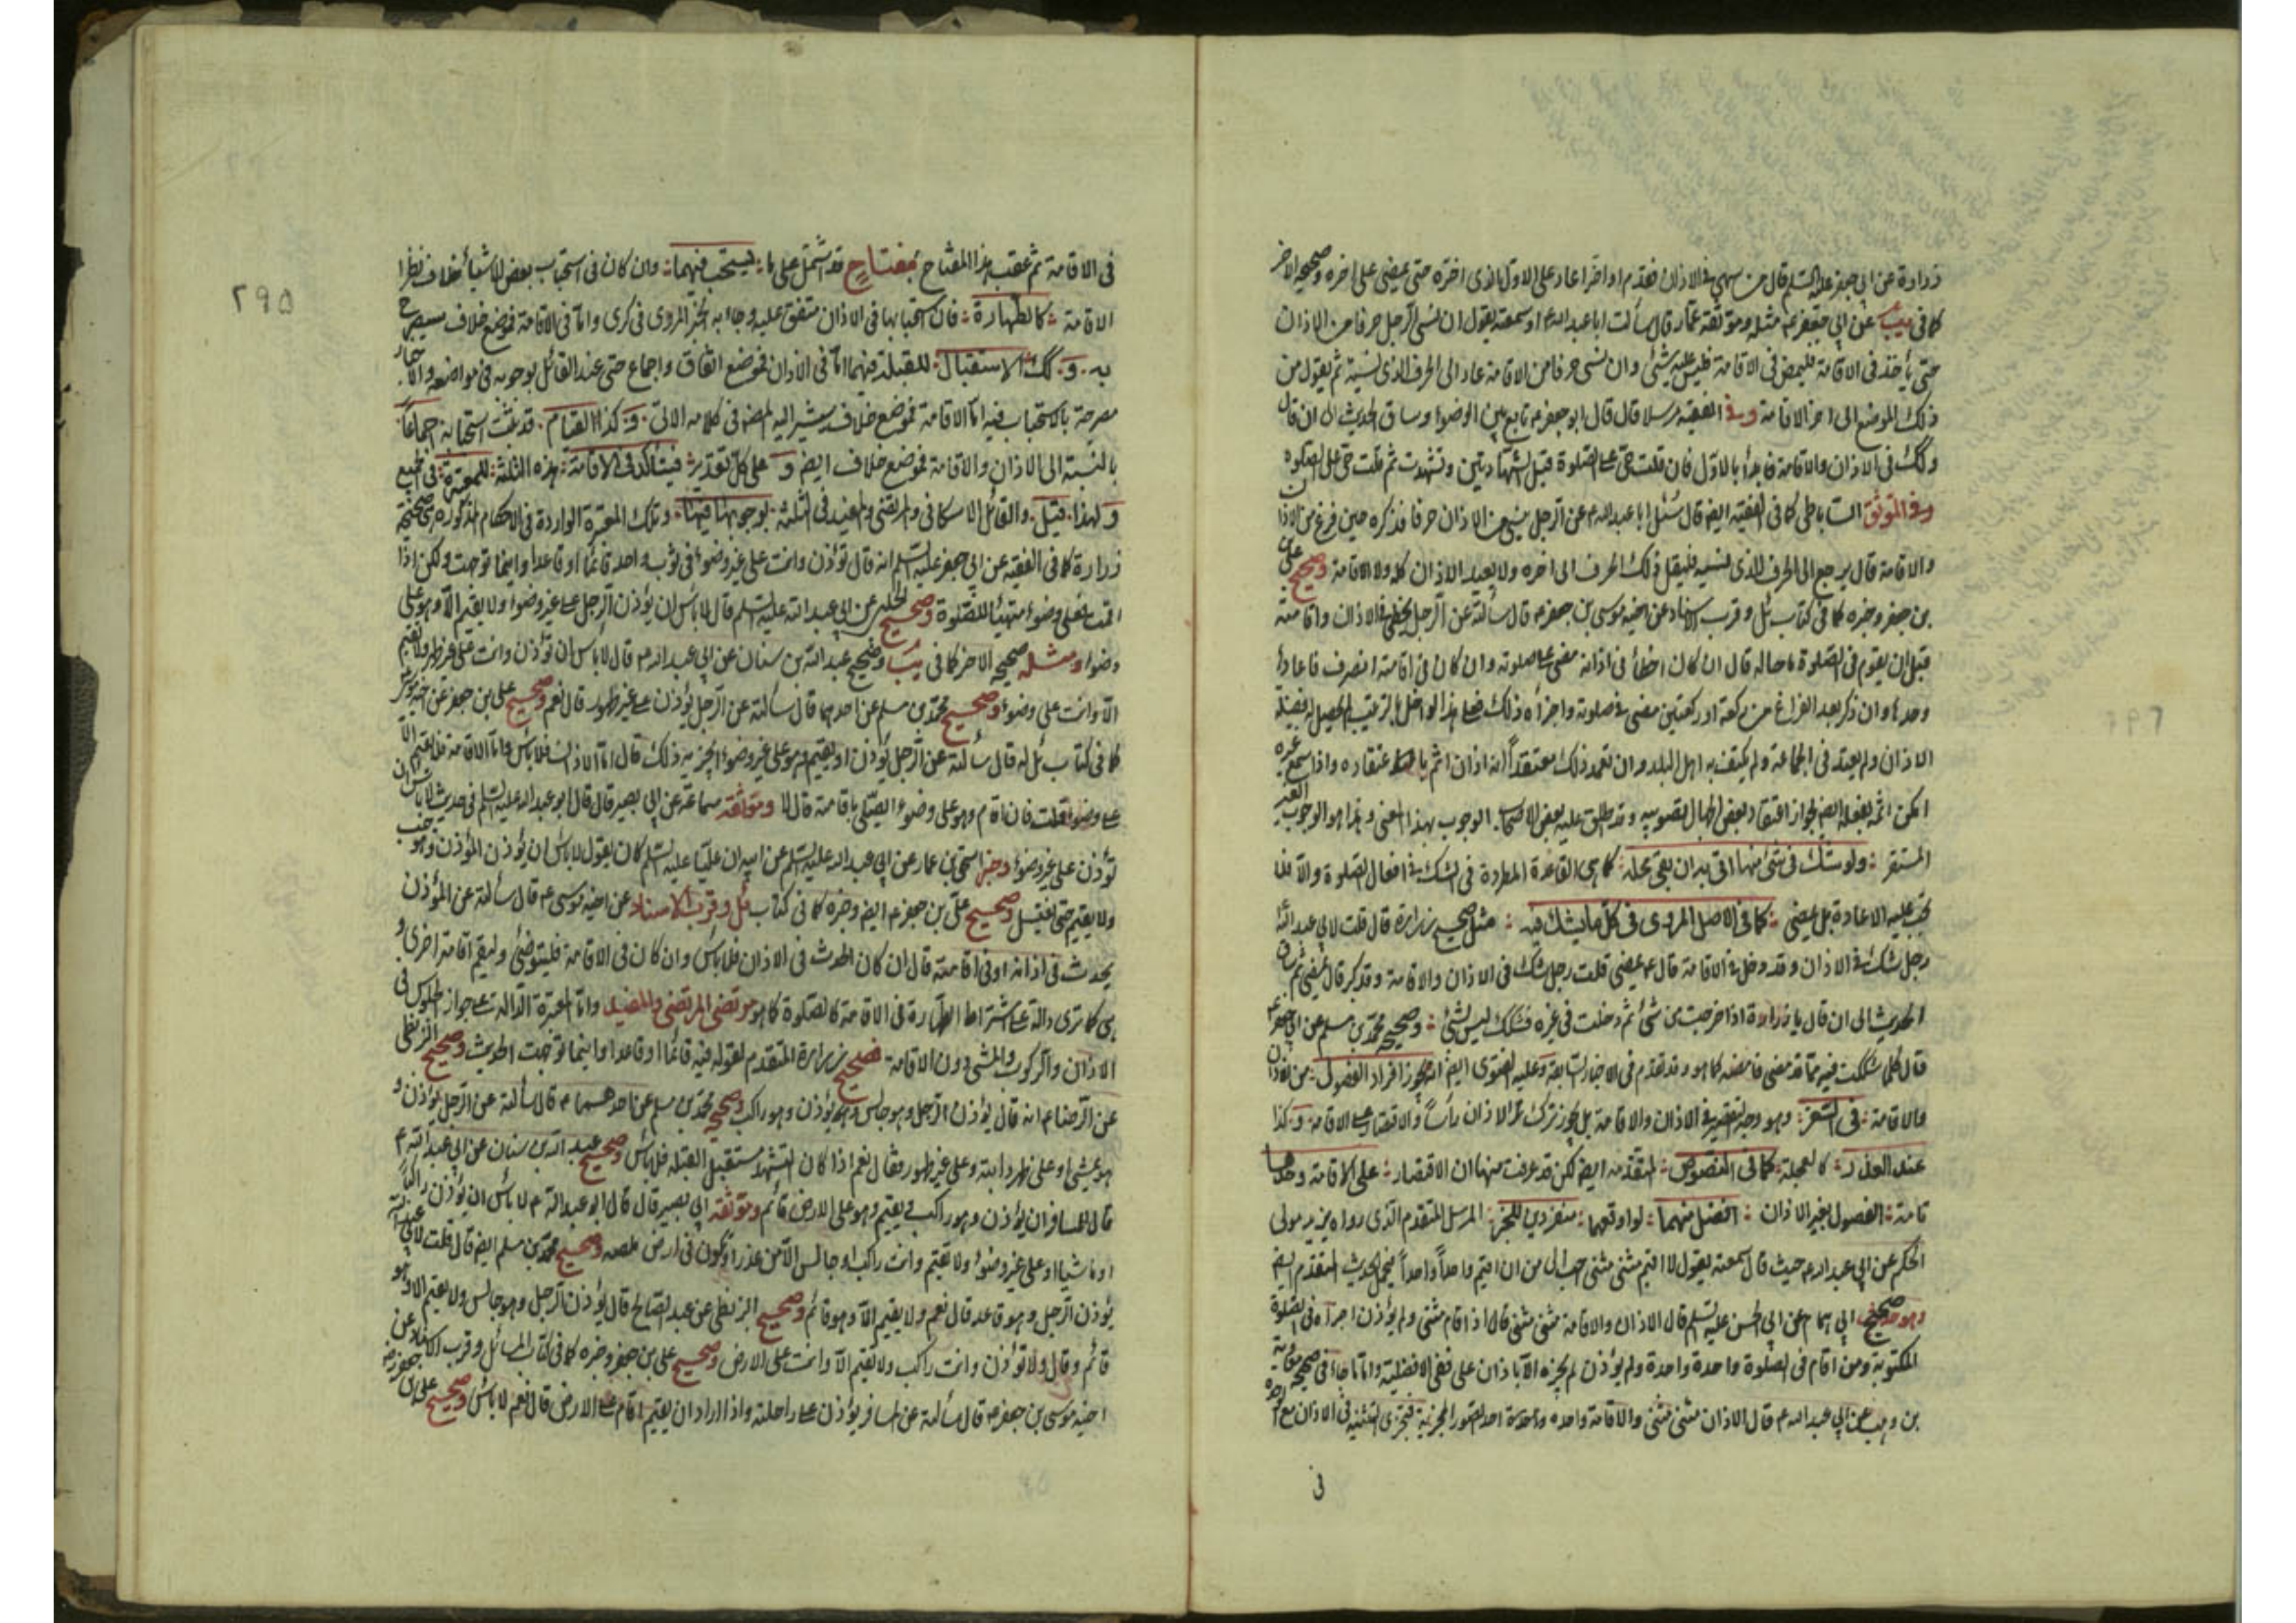 زرارة عن ابي جعفر عليه السلم قال من سهى في الاذان فقدم او اخر اعاد على الاول الذي اخره حتى يمضي على اخره وصحيحه الاخر
كما في يب عن ابي جعفر ع مثله وموثقة عمار قال سألت ابا عبد الله ع او سمعته يقول ان نسي الرجل حرفا من الاذان
حتى يأخذ في الاقامة فليمض في الاقامة فليس عليه شئ وان نسي حرفا من الاقامة عاد الى الحرف الذي نسيه ثم يقول من
ذلك الموضع الى اخر الاقامة وفي الفقيه مرسلا قال قال ابو جعفر ع تابع بين الوضوء وساق الحديث الى ان قال
وكك في الاذان والاقامة فابدأ بالاول فان قلت حي على الصلوة قبل الشهادتين وتشهدت ثم قلت حي على الصلوة
وفي الموثق الساباطي كما في الفقيه ايضا قال سئل ابا عبد الله ع عن الرجل نسي من الاذان حرفا فذكره حين فرغ من الاذان
والاقامة قال يرجع الى الحرف الذي نسيه فليقل ذلك الحرف الى اخره ولا يعيد الاذان كله ولا الاقامة وصحيح علي
بن جعفر وخبره كما في كتاب ئل وقرب الاسناد عن اخيه موسى بن جعفر ع قال سألته عن الرجل يخطئ في الاذان واقامته
قبل ان يقوم في الصلوة ما حاله قال ان كان اخطأ في اذانه مضى على صلوته وان كان في اقامته انصرف فاعادها
وحدها وان ذكر بعد الفراغ من ركعة او ركعتين مضى في صلوته واجزأه ذلك
الاذان ولم يعتد في الجماعة ولم يكتف به اهل البلد وان تعمد ذلك معتقدا انه اذان اثم باعتقاده واذا سمع غيره
المستقر ولو شك في شئ منها اتى به ان بقي محله كما هي القاعدة المطردة في الشك في افعال الصلوة والا فلا
تجب عليه الاعادة بل يمضي كما في الاصل المروي في كل ما يشك فيه مثل صحيح زرارة قال قلت لابي عبد الله
رجل شك في الاذان وقد دخل في الاقامة قال ع يمضي قلت رجل شك في الاذان والاقامة وقد كبر قال يمضي ثم ساق
الحديث الى ان قال يا زرارة اذا خرجت من شئ ثم دخلت في غيره فشكك ليس بشئ وصحيح محمد بن مسلم عن ابي جعفر ع
قال كلما شككت فيه مما قد مضى فامضه كما هو وقد تقدم في الاخبار السابقة وعليه الفتوى ايضا انه يجوز افراد الفصول من الاذان
والاقامة في السفر وهو وجه التقصير في الاذان والاقامة بل يجوز ترك الاذان رأسا والاقتصار على الاقامة وكذا
عند العذر كالعجلة كما في النصوص المتقدمة ايضا لكن قد عرفت منها ان الاقتصار على الاقامة وحدها
تامة الفصول بغير الاذان افضل منهما لو اوقعهما منفردين للخبر المرسل المتقدم الذي رواه بريد مولى
الحكم عن ابي عبد الله ع حيث قال سمعته يقول لان اقيم مثنى مثنى احب الى من ان اقيم واحدا واحدا
وهو صحيح ابي همام عن ابي الحسن عليه السلم قال الاذان والاقامة مثنى مثنى قال اذا اقام مثنى ولم يؤذن اجزأه في الصلوة
المكتوبة ومن اقام في الصلوة واحدة واحدة ولم يؤذن لم يجزه الا باذان على نفي الافضلية واما ما جاء في صحيح معوية
بن وهب عن ابي عبد الله ع قال الاذان مثنى مثنى والاقامة واحده
في
٢٩٦
٢٩٥
في الاقامة ثم عقب هذا المفتاح بمفتاح قد اشتمل على ما يستحب فيهما وان كان في استحباب بعض الاشياء خلاف نظرا
الاقامة كالطهارة فان استحبابها في الاذان متفق عليه وجاء به الخبر المروي في كرى واما في الاقامة فموضع خلاف سيصرح
به وكك الاستقبال للقبلة فيهما اما في الاذان فموضع اتفاق واجماع حتى عند القائل بوجوبه في مواضعه والاخبار
مصرحة بالاستحباب فيه اما الاقامة فموضع خلاف سيشير اليه المصنف في كلامه الاتي وكذا القيام قد ثبت استحبابه اجماعا
بالنسبة الى الاذان والاقامة فموضع خلاف ايضا وعلى كل تقدير فيتأكد في الاقامة هذه الثلثة للمعتبرة في الجميع
ولهذا قيل والقائل الاسكافي والمرتضى والمفيد في الثلثة بوجوبها فيها وتلك المعتبرة الواردة في الاحكام المذكورة هي صحيحة
زرارة كما في الفقيه عن ابي جعفر عليه السلم انه قال تؤذن وانت على غير وضوء في ثوب واحد قائما او قاعدا واينما توجهت ولكن اذا
اقمت فعلى وضوء متهيئا للصلوة وصحيح الحلبي عن ابي عبد الله عليه السلم قال لا بأس ان يؤذن الرجل على غير وضوء ولا يقيم الا وهو على
وضوء ومثله صحيحه الاخر كما في يب وصحيح عبد الله بن سنان عن ابي عبد الله ع قال لا بأس ان تؤذن وانت على غير طهر ولا تقيم
الا وانت على وضوء وصحيح محمد بن مسلم عن احدهما قال سألته عن الرجل يؤذن على غير طهور قال نعم وصحيح علي بن جعفر عن اخيه موسى
كما في كتاب ئل له قال سألته عن الرجل يؤذن او يقيم وهو على غير وضوء ايجزيه ذلك قال اما الاذان فلا بأس واما الاقامة فلا يقيم الا
على وضوء قلت فان اقام وهو على غير وضوء ايصلي باقامته قال لا وموثقة سماعة عن ابي بصير قال قال ابو عبد الله عليه السلم في حديث لا بأس ان
تؤذن على غير وضوء وخبر اسحق بن عمار عن ابي عبد الله عليه السلم عن ابيه ان عليا عليه السلم كان يقول لا بأس ان يؤذن المؤذن وهو جنب
ولا يقيم حتى يغتسل وصحيح علي بن جعفر ع ايضا وخبره كما في كتاب ئل وقرب الاسناد عن اخيه موسى ع قال سألته عن المؤذن
يحدث في اذانه او في اقامته قال ان كان الحدث في الاذان فلا بأس وان كان في الاقامة فليتوضئ وليقم اقامة اخرى و
هي كما ترى دالة على اشتراط الطهارة في الاقامة كالصلوة كما هو مرتضى المرتضى والمفيد واما المعتبرة الدالة على جواز الجلوس في
الاذان والركوب والمشي دون الاقامة فصحيح زرارة المتقدم لقوله فيه قائما او قاعدا واينما توجهت الحديث وصحيح البزنطي
عن الرضا ع انه قال يؤذن الرجل وهو جالس ويؤذن وهو راكب وصحيح محمد بن مسلم عن احدهما ع قال سألته عن الرجل يؤذن و
هو يمشي او على ظهر دابته وعلى غير طهور فقال نعم اذا كان التشهد مستقبل القبلة فلا بأس وصحيح عبد الله بن سنان عن ابي عبد الله ع
قال للمسافر ان يؤذن وهو راكب ويقيم وهو على الارض قائم وموثقة ابي بصير قال قال ابو عبد الله ع لا بأس ان يؤذن راكبا
او ماشيا او على غير وضوء ولا تقيم وانت راكب او جالس الا من عذر او تكون في ارض ملصة وصحيح محمد بن مسلم ايضا قال قلت لابي عبد الله
يؤذن الرجل وهو قاعد قال نعم ولا يقيم الا وهو قائم وصحيح البزنطي عن عبد الصالح قال يؤذن الرجل وهو جالس ولا يقيم الا وهو
قائم وقال ولا تؤذن وانت راكب ولا تقيم الا وانت على الارض وصحيح علي بن جعفر وخبره كما في كتاب المسائل وقرب الاسناد عن
اخيه موسى بن جعفر ع قال سألته عن المسافر يؤذن على راحلته واذا اراد ان يقيم اقام على الارض قال نعم لا بأس وصحيح علي بن جعفر